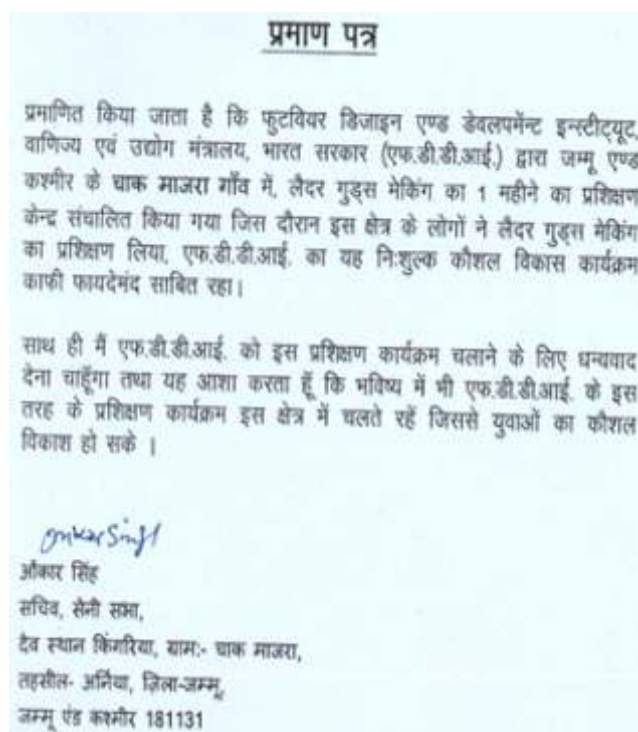 प्रमाण पत्र
प्रमाणित किया जाता है कि फुटवियर डिजाइन एण्ड डेवलपमेंन्ट इन्स्टीट्यूट,
वाणिज्य एवं उद्योग मंत्रालय, भारत सरकार (एफ.डी.डी.आई.) द्वारा जम्मू एण्ड
कश्मीर के चाक माजरा गाँव में, लैदर गुड्स मेकिंग का 1 महीने का प्रशिक्षण
केन्द्र संचालित किया गया जिस दौरान इस क्षेत्र के लोगों ने लैदर गुड्स मेकिंग
का प्रशिक्षण लिया, एफ.डी.डी.आई. का यह निःशुल्क कौशल विकास कार्यक्रम
काफी फायदेमंद साबित रहा।
साथ ही मैं एफ.डी.डी.आई. को इस प्रशिक्षण कार्यक्रम चलाने के लिए धन्यवाद
देना चाहूँगा तथा यह आशा करता हूँ कि भविष्य में भी एफ.डी.डी.आई. के इस
तरह के प्रशिक्षण कार्यक्रम इस क्षेत्र में चलते रहें जिससे युवाओं का कौशल
विकाश हो सके ।
Onkar Singh
ओंकार सिंह
सचिव, सेनी सभा,
देव स्थान किंगरिया, ग्रामः- चाक माजरा,
तहसील- अर्निया, ज़िला-जम्मू,
जम्मू एंड कश्मीर 181131